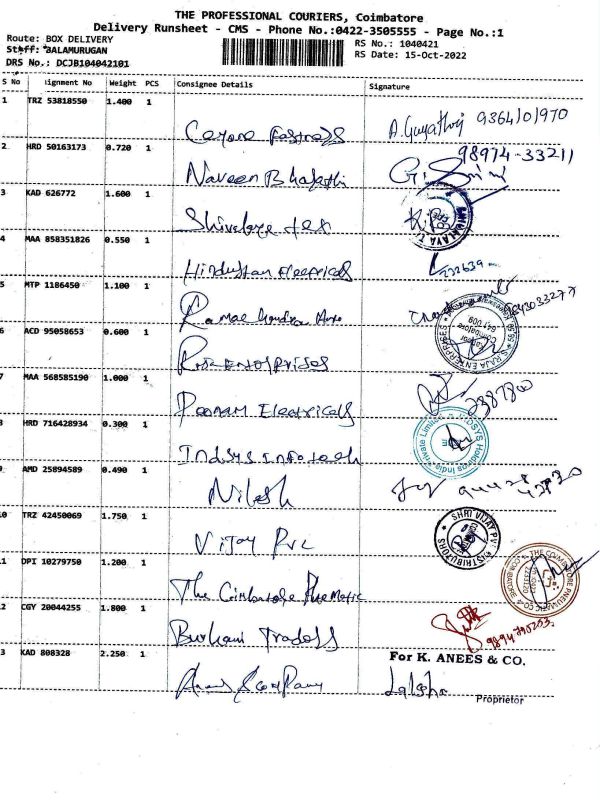 THE PROFESSIONAL COURIERS, Coimbatore
Delivery Runsheet - CMS - Phone No.:0422-3505555 - Page No.:1
Route: BOX DELIVERY
RS No.: 1040421
Staff: BALAMURUGAN
RS Date: 15-Oct-2022
DRS No.: DCJB104042101
S No ignment No Weight PCS Consignee Details Signature
1 TRZ 53818550 1.400 1
A.Gayathri 9364101970
2 HRD 50163173 0.720 1 98974-33211
Naveen Bharathi
3 KAD 626772 1.600 1
4 MAA 858351826 0.550 1
Hindustan Electricals
5 MTP 1186450 1.100 1
6 ACD 95058653 0.600 1
S.RAJA ENTERPRISES
7 MAA 568585190 1.000 1
Poonam Electricals
HRD 716428934 0.300 1
INDSYS Holdings India Private Limited
Indsys Infotech
AMD 25894589 0.490 1
Nilesh
0 TRZ 42450069 1.750 1
SHRI VIJAY PVC DISTRIBUTORS
Vijay Pvc
1 DPI 10279750 1.200 1
The Coimbatore Pneumatic
2 CGY 20044255 1.800 1
Burhani Traders
3 KAD 808328 2.250 1
For K. ANEES & CO.
Proprietor